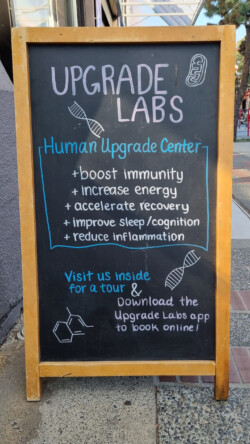 UPGRADE
LABS
Human Upgrade Center
+boost immunity
+ increase energy
+ accelerate recovery
+ improve sleep/cognition
+ reduce inflammation
Visit us inside
for a tour &
Download the
Upgrade Labs app
to book online!